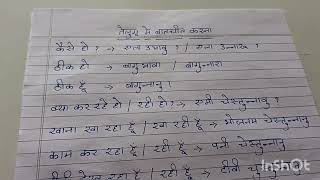 तेलुगु में बातचीत करना
कैसे हो? → एला उन्नावु / एला उन्नारु ?
ठीक हो → बागुन्नावा / बागुन्नारा
ठीक हूँ → बागुन्नानु ।
क्या कर रहे हो / रही हो? → एमी चेस्तुन्नावु
खाना खा रहा हूँ / खा रही हूँ → भोजनम चेस्तुन्नानु
काम कर रहा हूँ / रही हूँ → पनी चेस्तुन्नानु
रहा हूँ / रही हूँ → टीवी
InShot